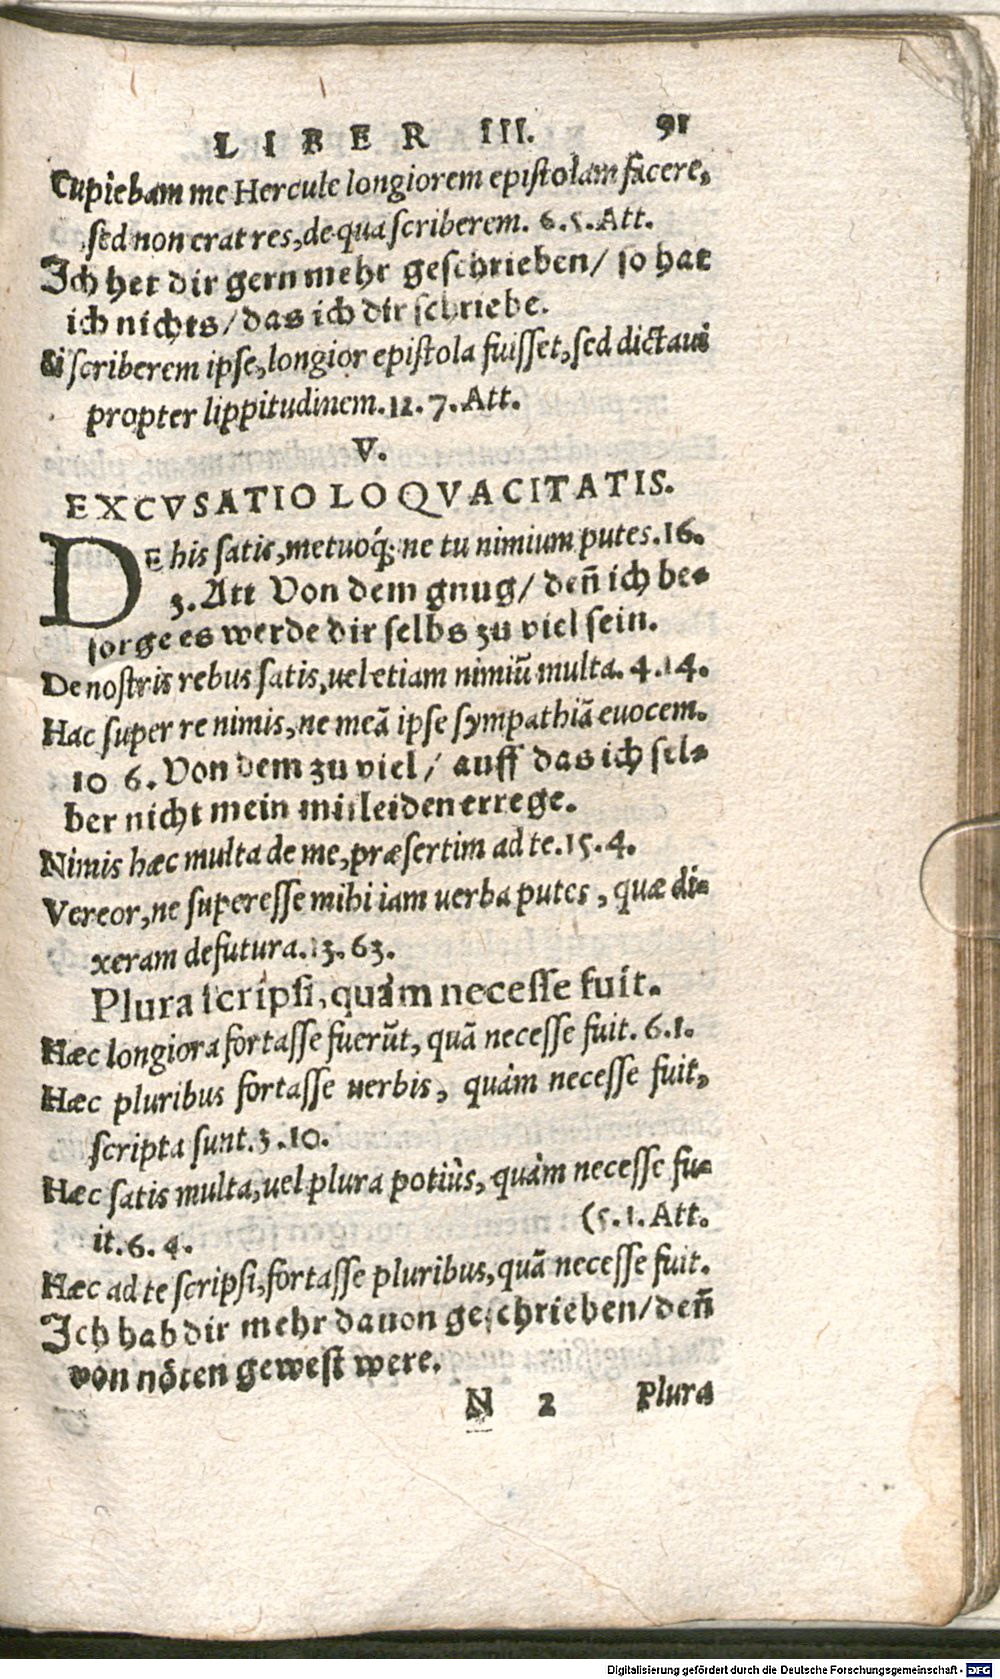 LIBER III. 91
Cupiebam me Hercule longiorem epistolam facere,
sed non erat res, de qua scriberem. 6.5. Att.
Ich het dir gern mehr geschrieben/ so hat
ich nichts/ das ich dir schriebe.
Si scriberem ipse, longior epistola fuisset, sed dictaui
propter lippitudinem. 12. 7. Att.
V.
EXCVSATIO LOQVACITATIS.
DE his satis, metuoq́; ne tu nimium putes. 16.
3. Att Von dem gnug/ deñ ich be-
sorge es werde dir selbs zu viel sein.
De nostris rebus satis, uel etiam nimiũ multa. 4. 14.
Hac super re nimis, ne meã ipse sympathiã euocem.
10 6. Von dem zu viel/ auff das ich sel-
ber nicht mein mitleiden errege.
Nimis hæc multa de me, præsertim ad te. 15. 4.
Vereor, ne superesse mihi iam uerba putes, quæ di-
xeram defutura. 13. 63.
Plura scripsi, quàm necesse fuit.
Hæc longiora fortasse fuerũt, quã necesse fuit. 6.1.
Hæc pluribus fortasse uerbis, quàm necesse fuit,
scripta sunt. 3. 10.
Hæc satis multa, uel plura potiùs, quàm necesse fu-
it. 6. 4. (5. 1. Att.
Hæc ad te scripsi, fortasse pluribus, quã necesse fuit.
Ich hab dir mehr dauon geschrieben/ deñ
von nöten gewest were.
N 2 Plura
Digitalisierung gefördert durch die Deutsche Forschungsgemeinschaft - DFG